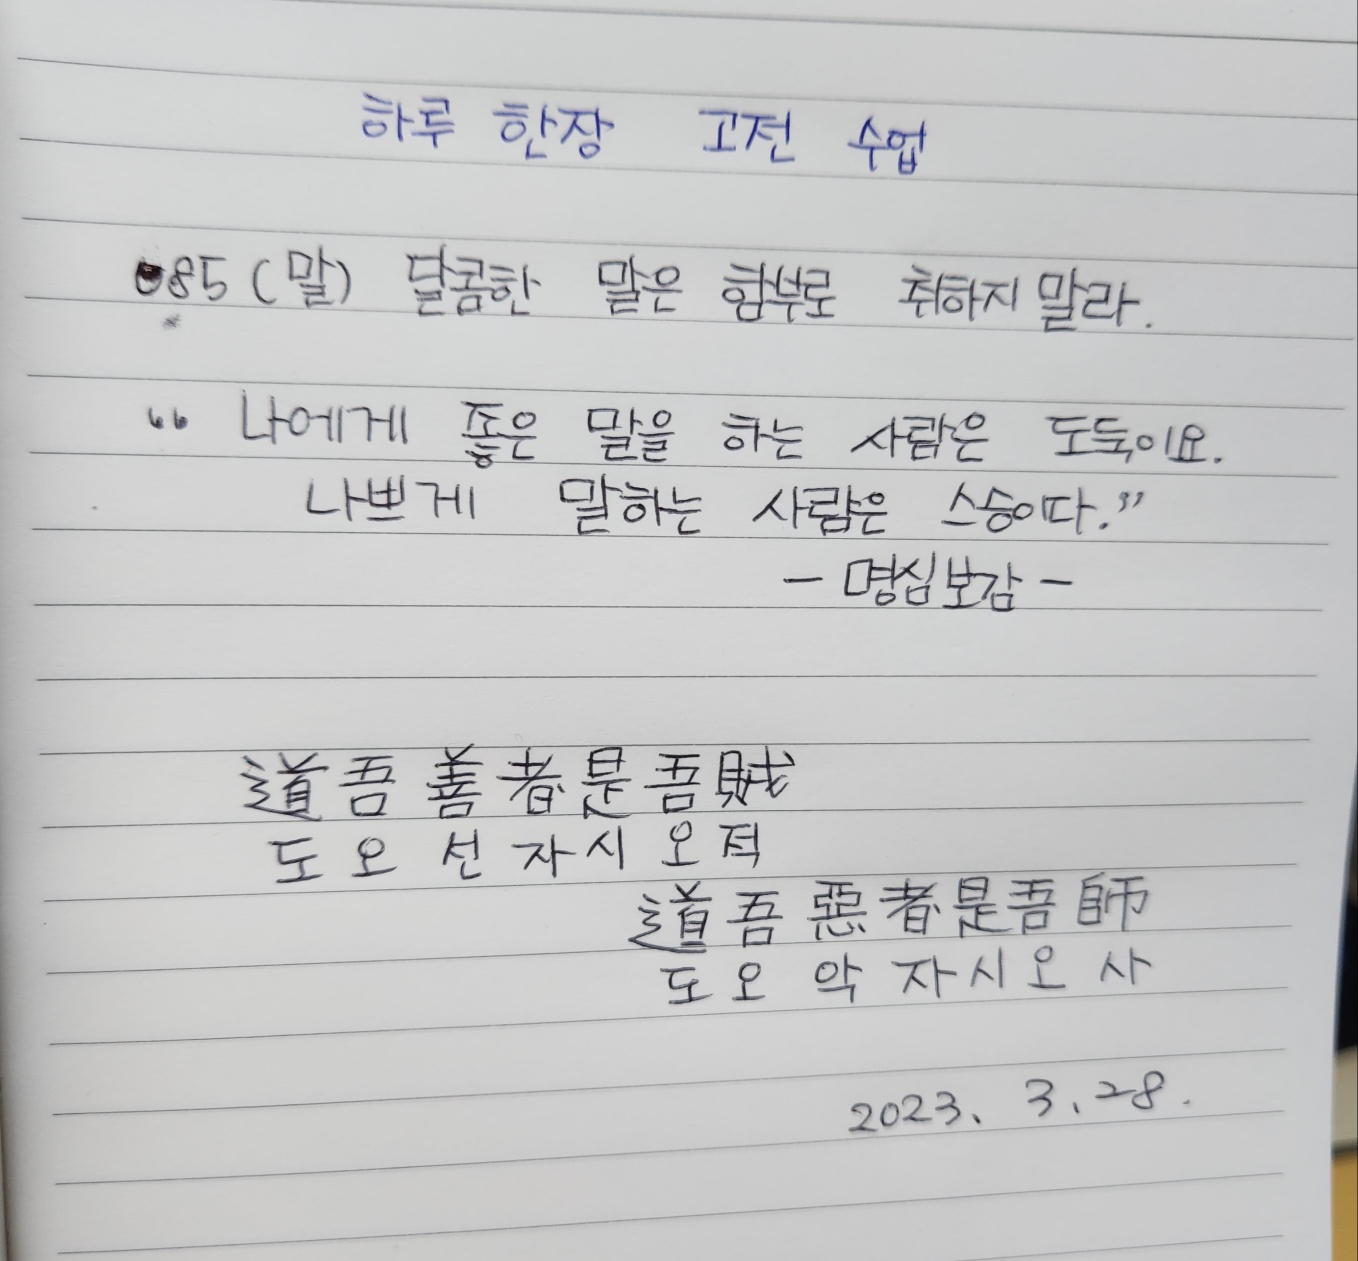 하루 한장 고전 수업
085 (말) 달콤한 말은 함부로 취하지 말라.
“ 나에게 좋은 말을 하는 사람은 도둑이요.
나쁘게 말하는 사람은 스승이다.”
- 명심보감 -
道吾善者是吾賊
도오선자시오적
道吾惡者是吾師
도오악자시오사
2023. 3. 28.